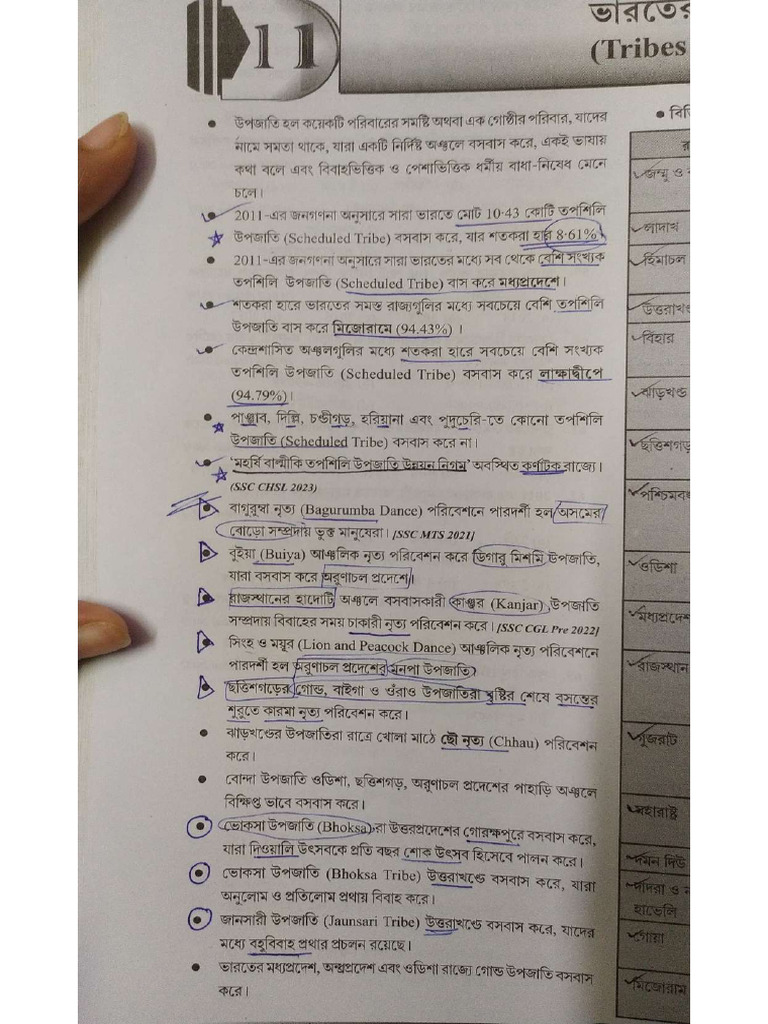 11
ভারতের
(Tribes
• উপজাতি হল কয়েকটি পরিবারের সমষ্টি অথবা এক গোষ্ঠীর পরিবার, যাদের
নামে সমতা থাকে, যারা একটি নির্দিষ্ট অঞ্চলে বসবাস করে, একই ভাষায়
কথা বলে এবং বিবাহভিত্তিক ও পেশাভিত্তিক ধর্মীয় বাধা-নিষেধ মেনে
চলে।
• 2011-এর জনগণনা অনুসারে সারা ভারতে মোট 10·43 কোটি তপশিলি
উপজাতি (Scheduled Tribe) বসবাস করে, যার শতকরা হার 8·61%
• 2011-এর জনগণনা অনুসারে সারা ভারতের মধ্যে সব থেকে বেশি সংখ্যক
তপশিলি উপজাতি (Scheduled Tribe) বাস করে মধ্যপ্রদেশে।
• শতকরা হারে ভারতের সমস্ত রাজ্যগুলির মধ্যে সবচেয়ে বেশি তপশিলি
উপজাতি বাস করে মিজোরামে (94.43%) ।
• কেন্দ্রশাসিত অঞ্চলগুলির মধ্যে শতকরা হারে সবচেয়ে বেশি সংখ্যক
তপশিলি উপজাতি (Scheduled Tribe) বসবাস করে লাক্ষাদ্বীপে
(94.79%)।
• পাঞ্জাব, দিল্লি, চণ্ডীগড়, হরিয়ানা এবং পুদুচেরি-তে কোনো তপশিলি
উপজাতি (Scheduled Tribe) বসবাস করে না।
• 'মহর্ষি বাল্মীকি তপশিলি উপজাতি উন্নয়ন নিগম' অবস্থিত কর্ণাটক রাজ্যে।
(SSC CHSL 2023)
• বাগুরুম্বা নৃত্য (Bagurumba Dance) পরিবেশনে পারদর্শী হল অসমের
বোড়ো সম্প্রদায় ভুক্ত মানুষেরা। [SSC MTS 2021]
• বুইয়া (Buiya) আঞ্চলিক নৃত্য পরিবেশন করে ডিগারু মিশমি উপজাতি,
যারা বসবাস করে অরুণাচল প্রদেশে।
• রাজস্থানের হাদোটি অঞ্চলে বসবাসকারী কাঞ্জর (Kanjar) উপজাতি
সম্প্রদায় বিবাহের সময় চাকারী নৃত্য পরিবেশন করে। [SSC CGL Pre 2022]
• সিংহ ও ময়ূর (Lion and Peacock Dance) আঞ্চলিক নৃত্য পরিবেশনে
পারদর্শী হল অরুণাচল প্রদেশের মনপা উপজাতি।
• ছত্তিশগড়ের গোন্ড, বাইগা ও ওঁরাও উপজাতিরা বৃষ্টির শেষে বসন্তের
শুরুতে কারমা নৃত্য পরিবেশন করে।
• ঝাড়খণ্ডের উপজাতিরা রাত্রে খোলা মাঠে ছৌ নৃত্য (Chhau) পরিবেশন
করে।
• বোন্দা উপজাতি ওডিশা, ছত্তিশগড়, অরুণাচল প্রদেশের পাহাড়ি অঞ্চলে
বিক্ষিপ্ত ভাবে বসবাস করে।
• ভোকসা উপজাতি (Bhoksa)-রা উত্তরপ্রদেশের গোরক্ষপুরে বসবাস করে,
যারা দিওয়ালি উৎসবকে প্রতি বছর শোক উৎসব হিসেবে পালন করে।
• ভোকসা উপজাতি (Bhoksa Tribe) উত্তরাখণ্ডে বসবাস করে, যারা
অনুলোম ও প্রতিলোম প্রথায় বিবাহ করে।
• জানসারী উপজাতি (Jaunsari Tribe) উত্তরাখণ্ডে বসবাস করে, যাদের
মধ্যে বহুবিবাহ প্রথার প্রচলন রয়েছে।
• ভারতের মধ্যপ্রদেশ, অন্ধ্রপ্রদেশ এবং ওডিশা রাজ্যে গোন্ড উপজাতি বসবাস
করে।
জম্মু ও
লাদাখ
হিমাচল
উত্তরাখণ্ড
বিহার
ঝাড়খণ্ড
ছত্তিশগড়
পশ্চিমবঙ্গ
ওডিশা
মধ্যপ্রদেশ
রাজস্থান
গুজরাট
মহারাষ্ট্র
দমন দিউ
দাদরা ও
হাভেলি
গোয়া
মিজোরাম